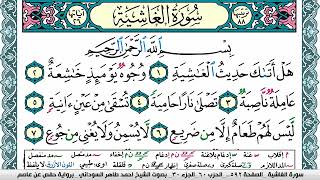 سُورَةُ الْغَاشِيَةِ
ترتيبها ٨٨
آياتها ٢٦
بِسْمِ اللَّهِ الرَّحْمَٰنِ الرَّحِيمِ
هَلْ أَتَىٰكَ حَدِيثُ الْغَٰشِيَةِ ١ وُجُوهٌ يَوْمَئِذٍ خَٰشِعَةٌ ٢
عَامِلَةٌ نَّاصِبَةٌ ٣ تَصْلَىٰ نَارًا حَامِيَةً ٤ تُسْقَىٰ مِنْ عَيْنٍ ءَانِيَةٍ ٥
لَّيْسَ لَهُمْ طَعَامٌ إِلَّا مِن ضَرِيعٍ ٦ لَّا يُسْمِنُ وَلَا يُغْنِي مِن جُوعٍ ٧
سورة الغاشية - الصفحة ٥٩٢ - الحزب ٦٠ - الجزء ٣٠ - بصوت الشيخ احمد طاهر السوداني - برواية حفص عن عاصم